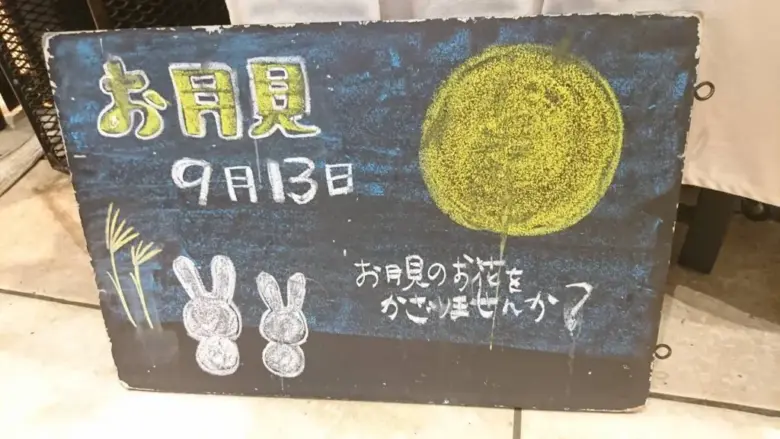 お月見
9月13日
お月見のお花を
かざりませんか?